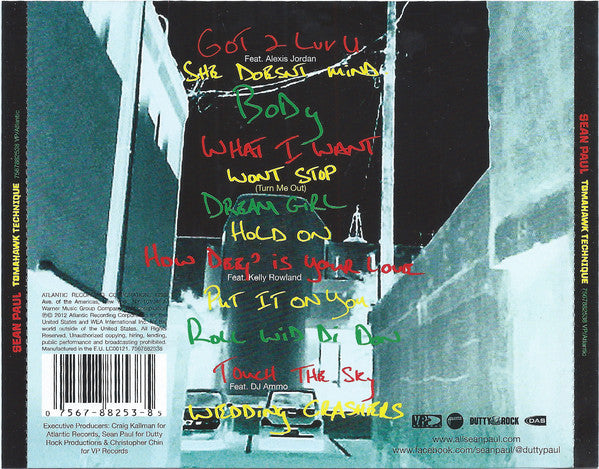 GOT 2 LUV U
Feat. Alexis Jordan
SHE DOESNT MIND
BODY
WHAT I WANT
WONT STOP
(Turn Me Out)
DREAM GIRL
HOLD ON
HOW DEEP IS YOUR LOVE
Feat. Kelly Rowland
PUT IT ON YOU
ROLL WID DI DON
TOUCH THE SKY
Feat. DJ Ammo
WEDDING CRASHERS
SEAN PAUL TOMAHAWK TECHNIQUE 7567882538 VP/Atlantic
SEAN PAUL TOMAHAWK TECHNIQUE 7567882538 VP/Atlantic
ATLANTIC RECORDING CORPORATION,
Ave. of the Americas, New York,
Warner Music Group Company.
2012 Atlantic Recording Corporation for the
United States and WEA International Inc. for the
world outside of the United States. All Rights
Reserved. Unauthorized copying, hiring, lending,
public performance and broadcasting prohibited.
Manufactured in the E.U. LC00121. 7567882538
0 7567-88253-8 5
Executive Producers: Craig Kallman for
Atlantic Records, Sean Paul for Dutty
Rock Productions & Christopher Chin
for VP Records
VP DUTTY ROCK DAS
www.allseanpaul.com
www.facebook.com/seanpaul/@duttypaul